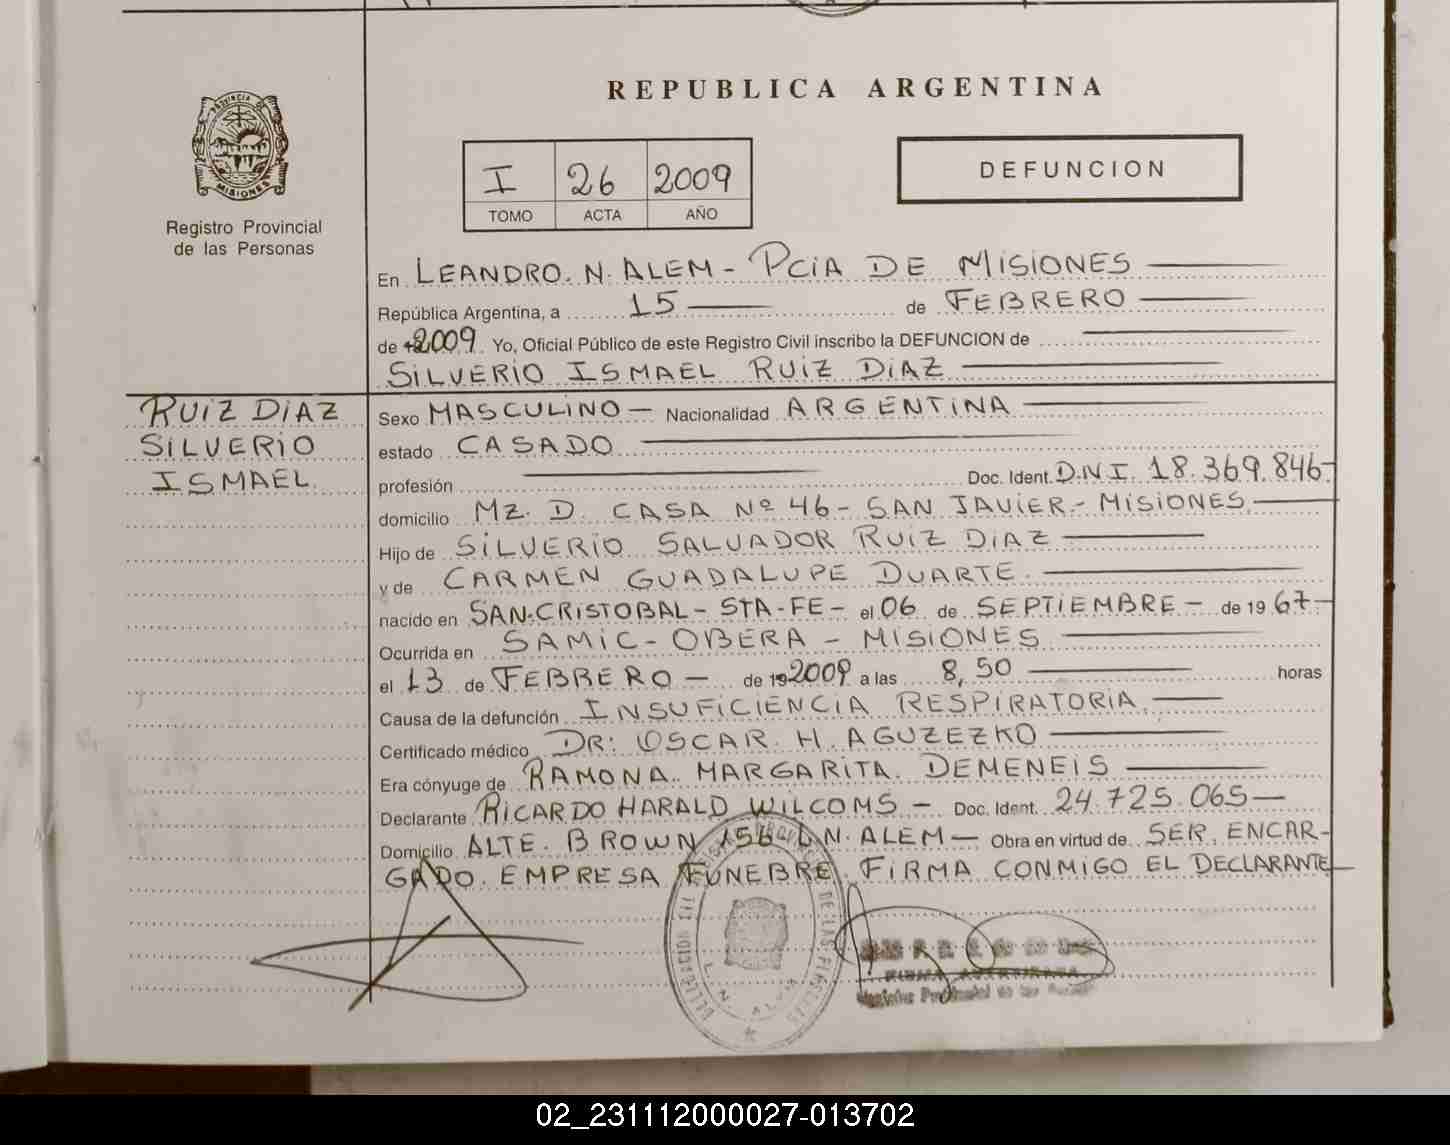 REPUBLICA ARGENTINA
PROVINCIA DE
MISIONES
Registro Provincial
de las Personas
I 26 2009
TOMO ACTA AÑO
DEFUNCION
En LEANDRO. N. ALEM - PCIA DE MISIONES
República Argentina, a 15 de FEBRERO
de 2009 Yo, Oficial Público de este Registro Civil inscribo la DEFUNCION de
SILVERIO ISMAEL RUIZ DIAZ
RUIZ DIAZ
SILVERIO
ISMAEL.
Sexo MASCULINO - Nacionalidad ARGENTINA
estado CASADO
profesión Doc. Ident. D.N.I. 18.369.846-
domicilio MZ. D. CASA Nº 46 - SAN JAVIER - MISIONES.
Hijo de SILVERIO SALVADOR RUIZ DIAZ
y de CARMEN GUADALUPE DUARTE.
nacido en SAN CRISTOBAL - STA - FE - el 06 de SEPTIEMBRE - de 19 67-
Ocurrida en SAMIC - OBERA - MISIONES
el 13 de FEBRERO - de 19 2009 a las 8,50 horas
Causa de la defunción INSUFICIENCIA RESPIRATORIA.
Certificado médico DR: OSCAR H. AGUZEZKO
Era cónyuge de RAMONA. MARGARITA. DEMENEIS
Declarante RICARDO HARALD WILCOMS - Doc. Ident. 24.725.065-
Domicilio ALTE. BROWN L N. ALEM - Obra en virtud de SER. ENCAR-
GADO. EMPRESA FUNEBRE. FIRMA CONMIGO EL DECLARANTE
DELEGACION
L. N. ALEM
DE LAS PERSONAS
02_231112000027-013702